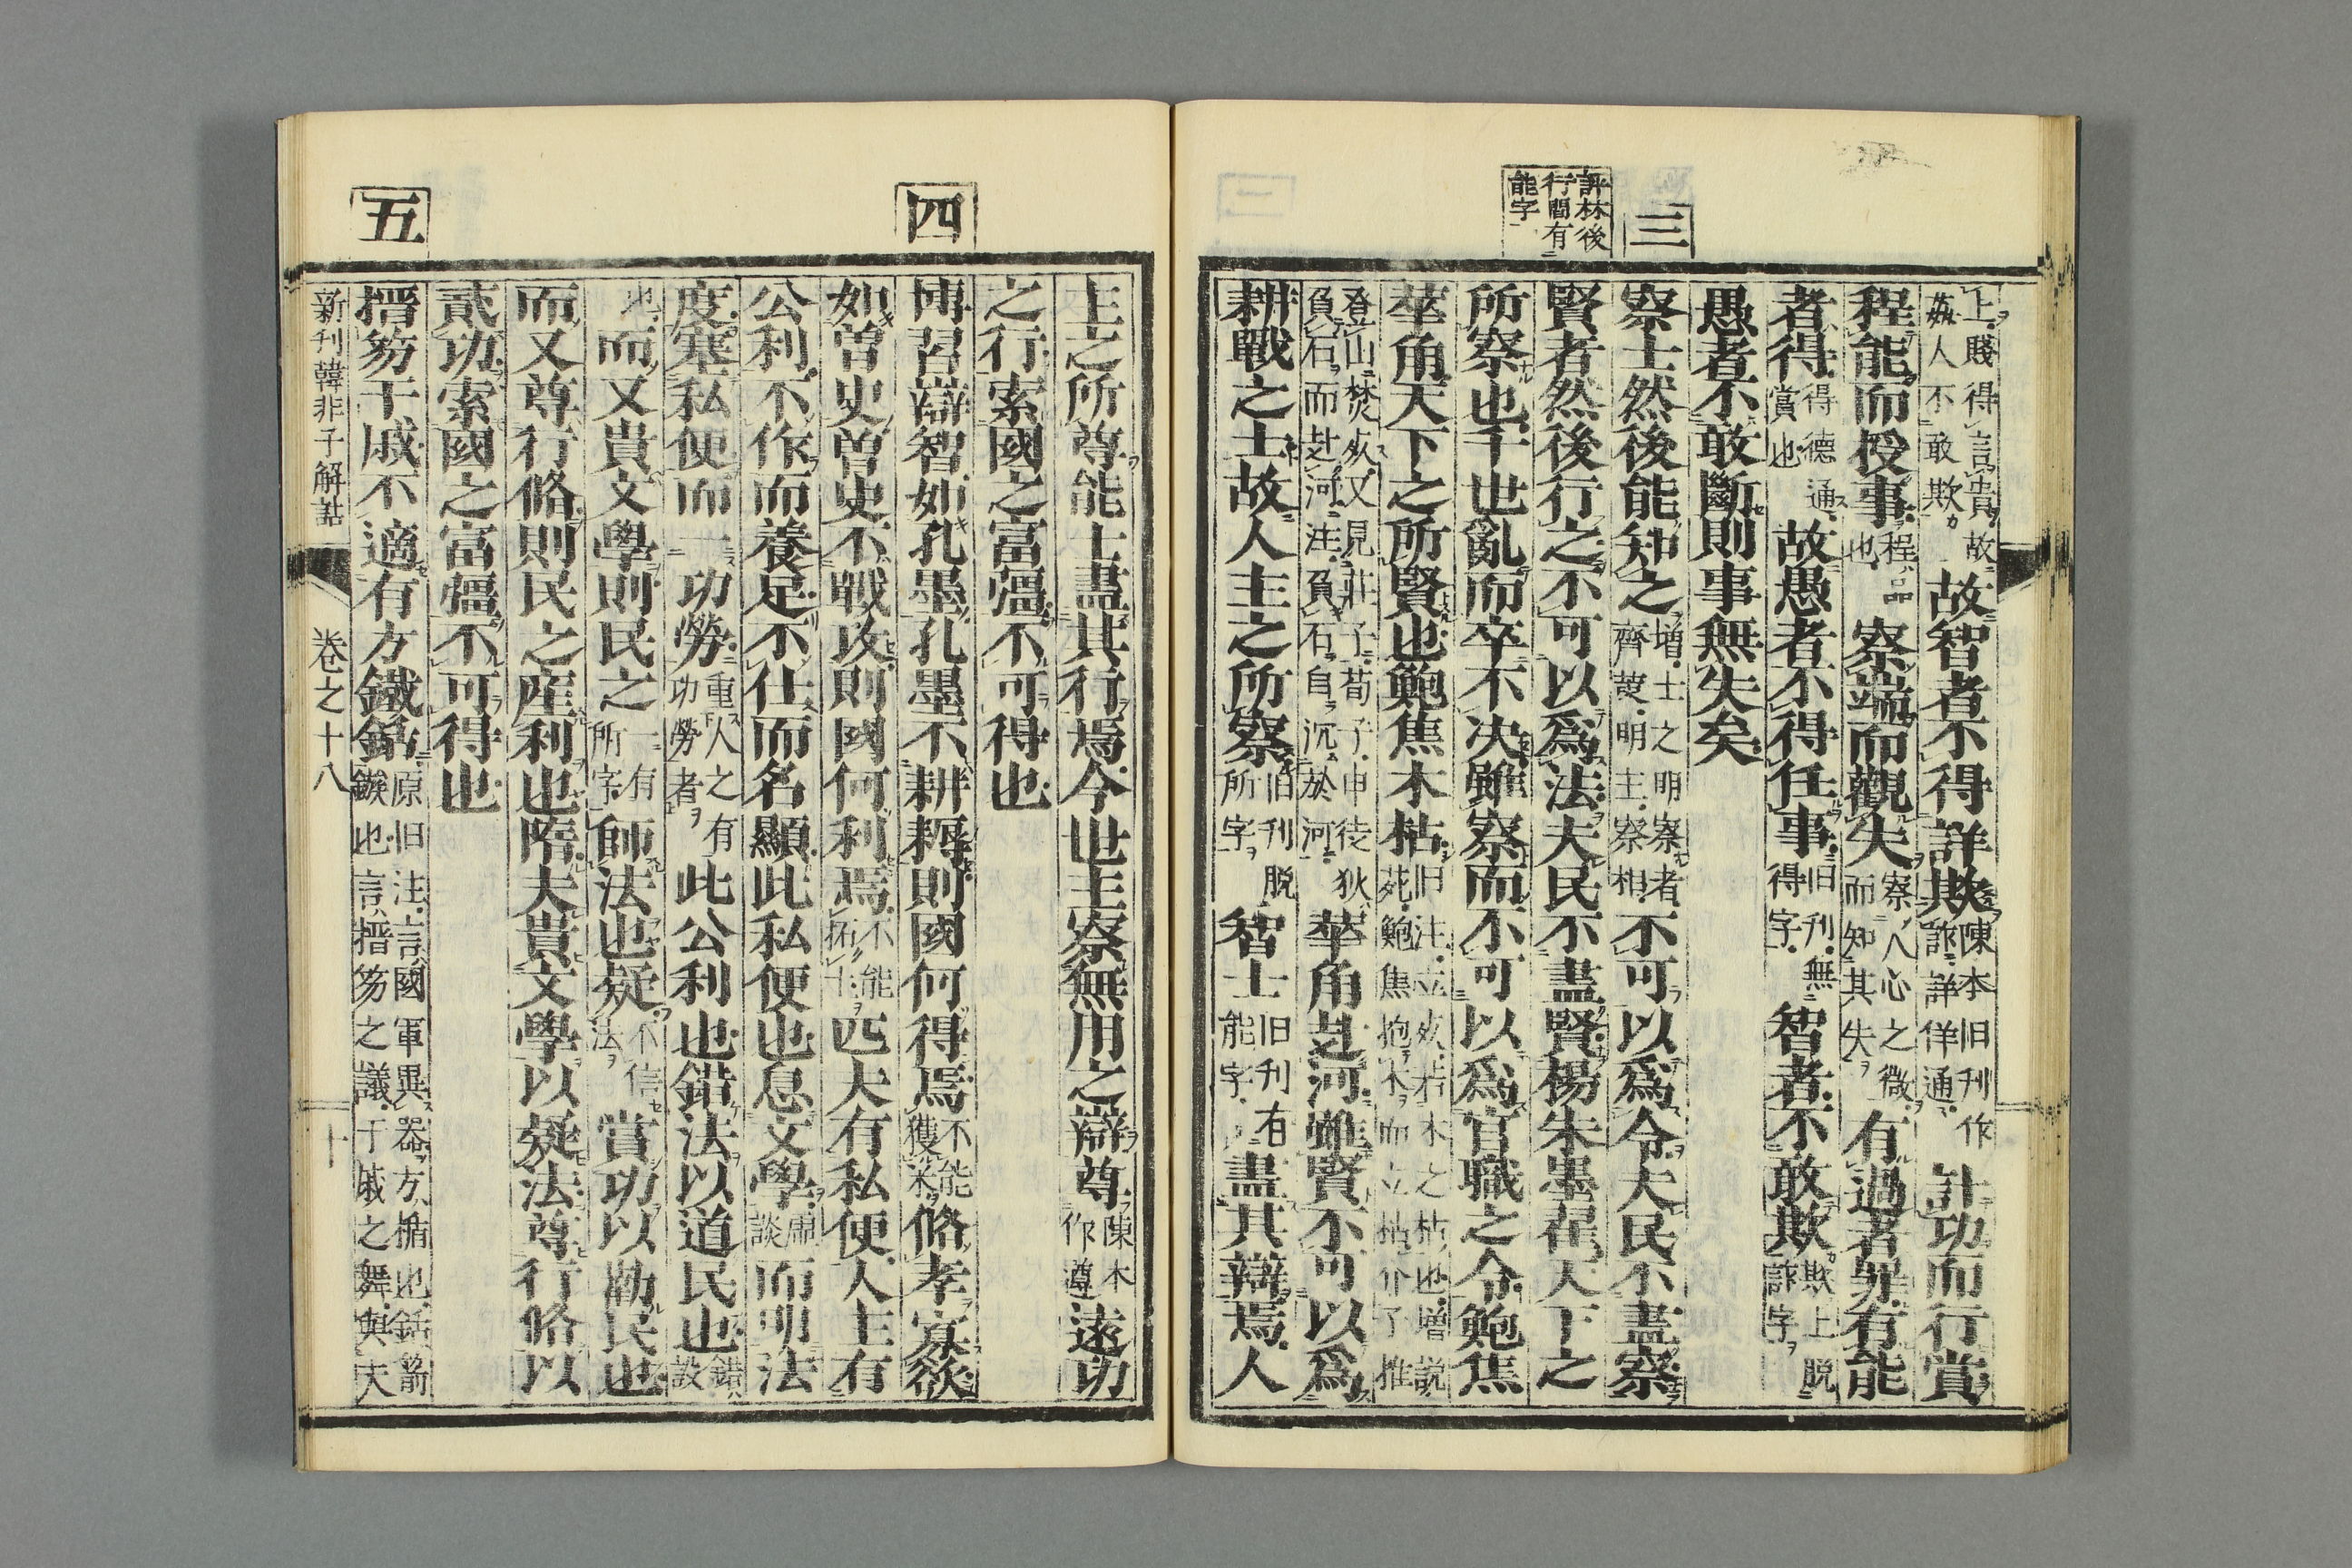 三
評林後
行間有
能字
上賤得言貴故
姦人不敢欺
故智者不得詐欺
陳本旧刊作
詐詳佯通
計功而行賞
程能而授事
程品
也
察端而觀失
察人心之微
而知其失
有過者罪有能
者得
得德通
賞也
故愚者不得任事
旧刊無
得字
智者不敢欺
欺上脱
詐字
愚者不敢斷則事無失矣
察士然後能知之
増士之明察者
齊說明主察相
不可以爲令夫民不盡察
賢者然後行之不可以爲法夫民不盡賢楊朱墨翟天下之
所察也千世亂而卒不决雖察而不可以爲官職之令鮑焦
華角天下之所賢也鮑焦木枯
旧注立死若木之枯也増説
苑鮑焦抱木而立枯介子推
登山焚死又見莊子荀子申徒狄
負石而赴河注負石自沉於河
華角赴河雖賢不可以爲
耕戰之士故人主之所察
旧刊脱
所字
智士
旧刊有
能字
盡其辯焉人
四
五
主之所尊能士盡其行焉今世主察無用之辯尊
陳本
作遵
遠功
之行索國之富彊不可得也
博習辯智如孔墨孔墨不耕耨則國何得焉
不能
獲米
脩孝寡欲
如曽史曽史不戰攻則國何利焉
不能
拓土
匹夫有私便人主有
公利不作而養足不仕而名顯此私便也息文學
虛
談
而明法
度塞私便而一功勞
重人之有
功勞者
此公利也錯法以道民也
錯
設
也
而又貴文學則民之
一有
所字
師法也疑
不信
法
賞功以勸民也
而又尊行脩則民之産利也惰夫貴文學以疑法尊行脩以
貳功索國之富彊不可得也
搢笏干戚不適有方鐵銛
原旧注言國軍異器方楯也銛箭
鏃也言搢笏之議干戚之舞與夫
新刊韓非子解詁
卷之十八
十